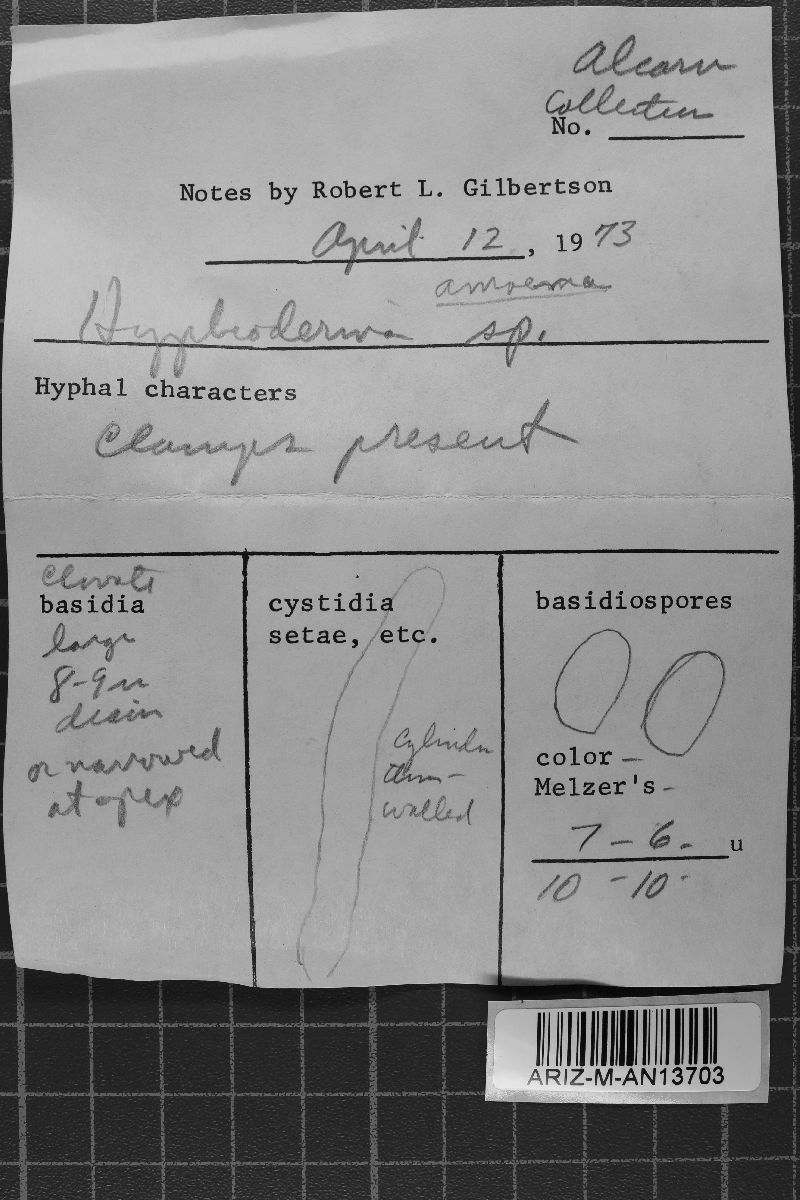 Alcorn
Collection
No.
Notes by Robert L. Gilbertson
April 12, 1973
amoena
Hyphoderma sp.
Hyphal characters
Clamps present
clavate
basidia
large
8-9u
diam
or narrowed
at apex
cystidia
setae, etc.
Cylindr
thin-
walled
basidiospores
color —
Melzer's -
7 - 6. u
10 - 10.
ARIZ-M-AN13703